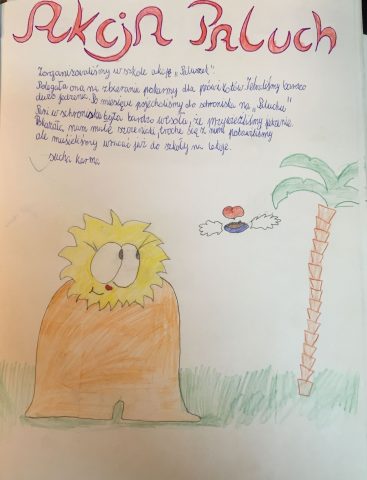 Akcja Paluch
Zorganizowaliśmy w szkole akcję „Paluszek".
Polegała ona na zbieraniu pokarmu dla psów i kotów. Zebraliśmy bardzo
dużo jedzenia. Po miesiącu pojechaliśmy do schroniska na „Paluchu"
Pani w schronisku była bardzo wesoła, że przywieźliśmy jedzenie.
Pokazała nam małe szczeniaki, trochę się z nimi pobawiliśmy
ale musieliśmy wracać już do szkoły na lekcje.
sucha karma